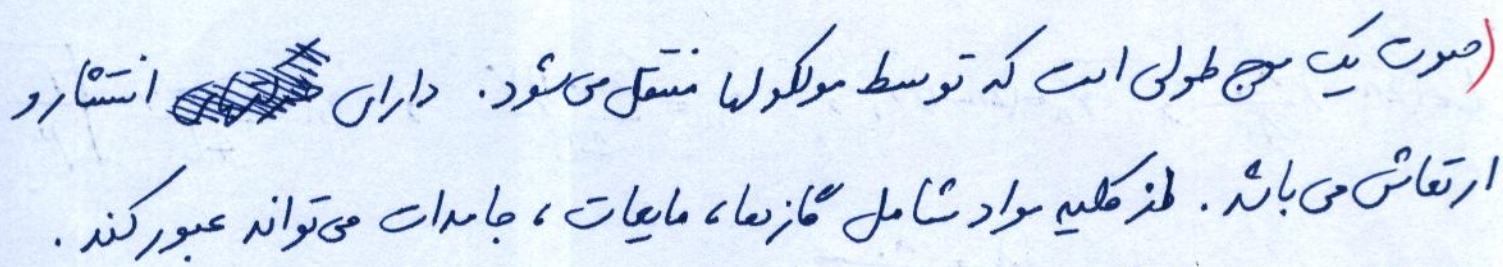 (صوت یک موج طولی است که توسط مولکولها منتقل می‌شود. دارای انتشار و
ارتعاش می باشد. از کلیه مواد شامل گازها، مایعات، جامدات می‌تواند عبور کند.